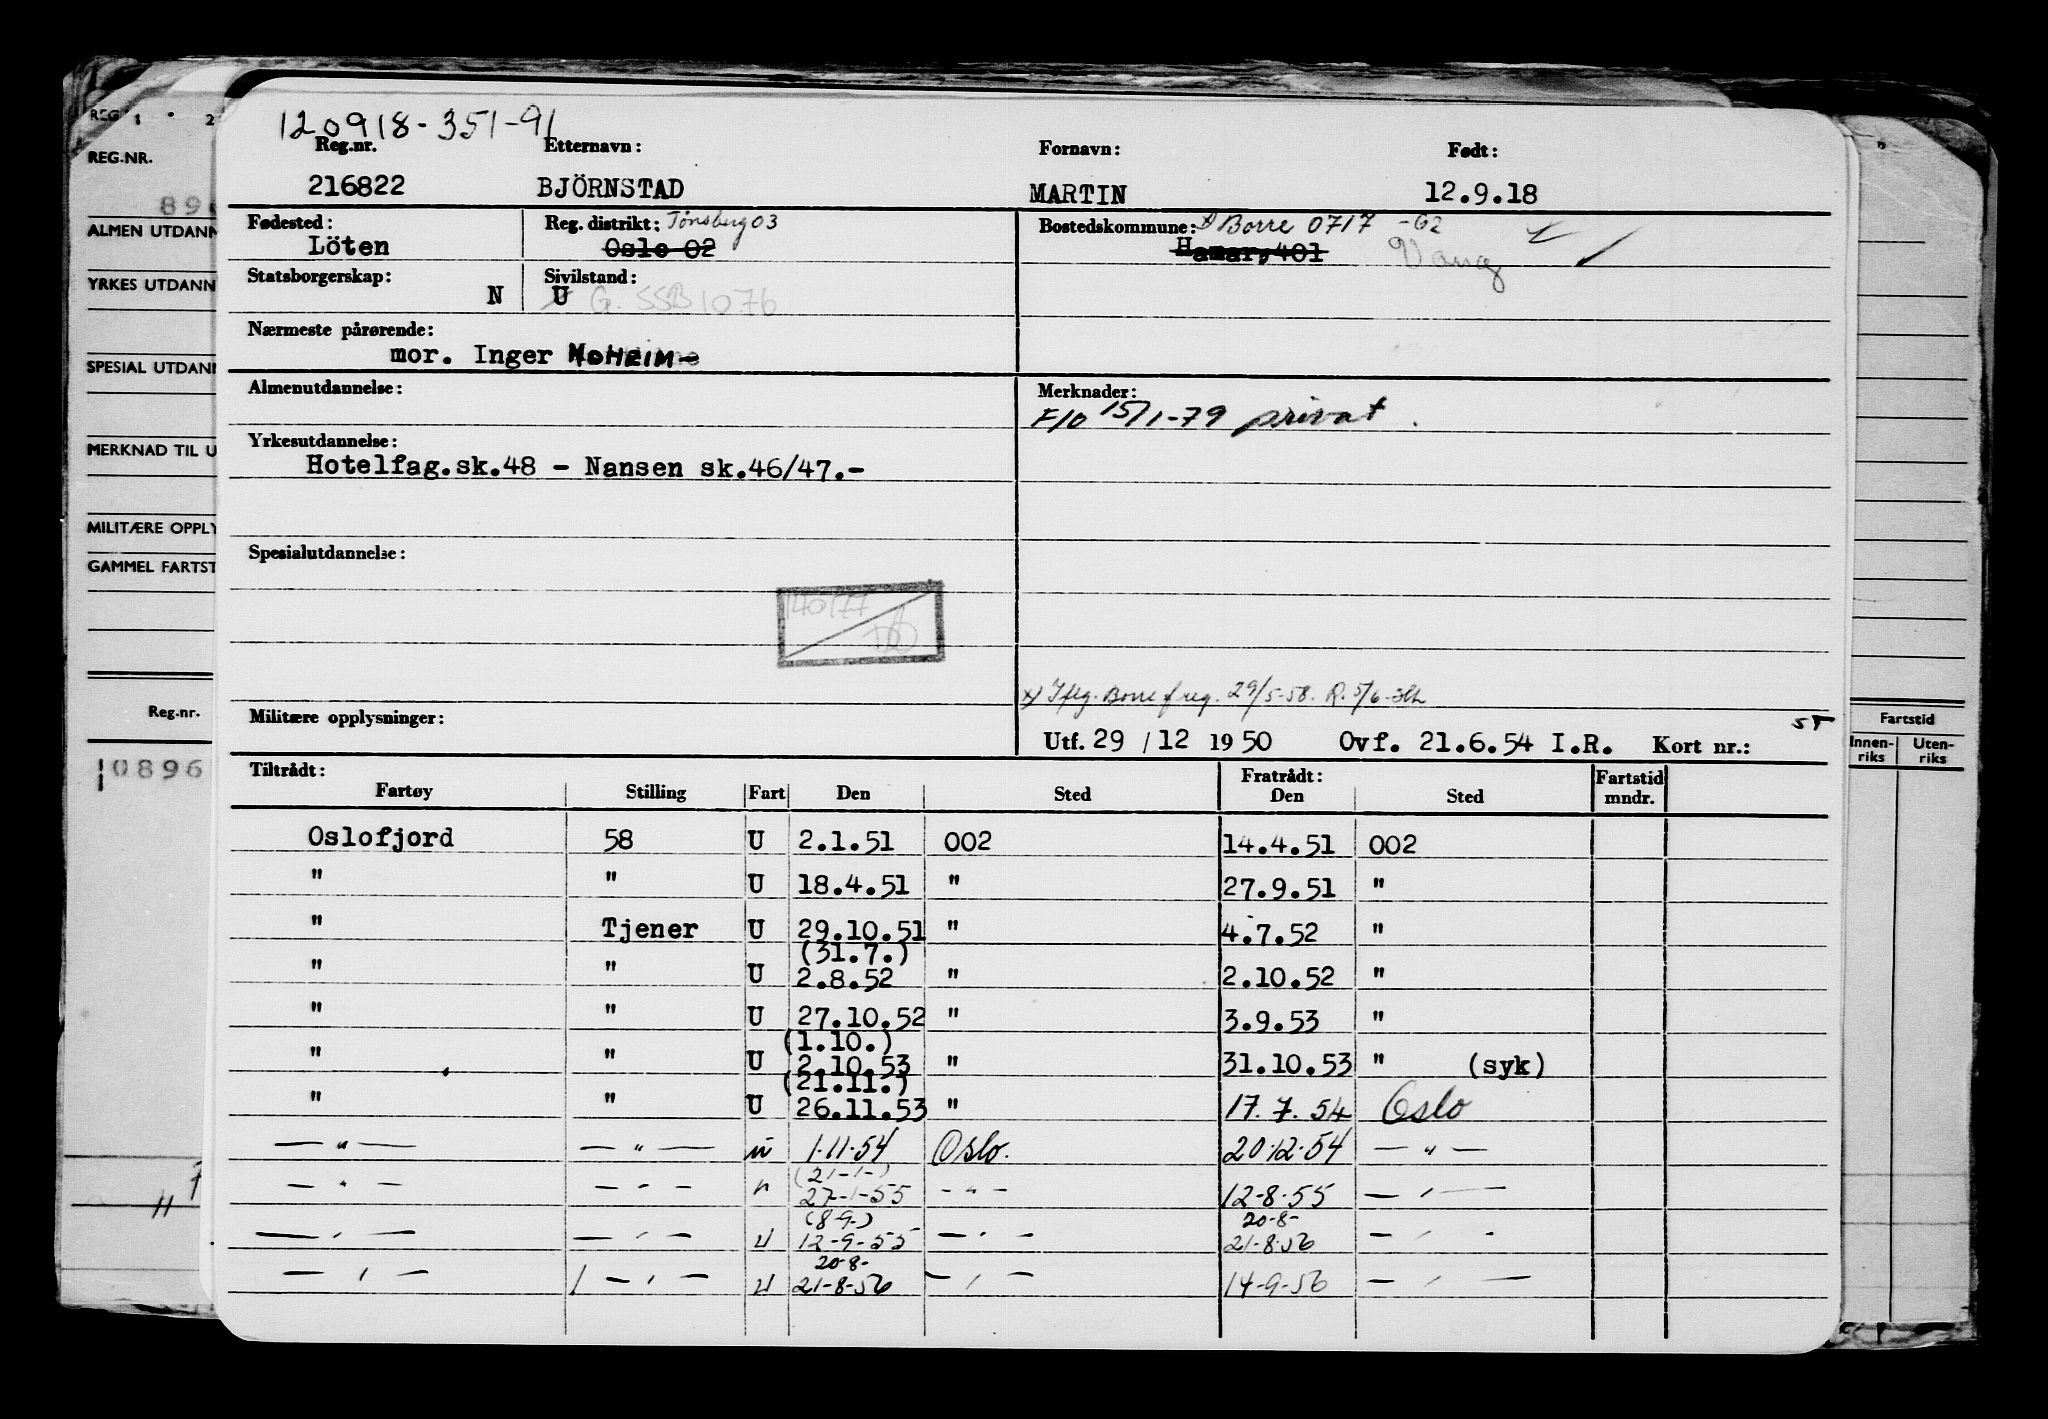 REG 1 2
REG.NR.
89
ALMEN UTDANN
YRKES UTDANN
SPESIAL UTDANN
MERKNAD TIL U
MILITÆRE OPPLY
GAMMEL FARTST
Reg.nr.
10896
120918-351-91
Reg.nr. Etternavn: Fornavn: Født:
216822 BJÖRNSTAD MARTIN 12.9.18
Fødested: Reg. distrikt: Tønsberg 03 Bostedskommune: x) Borre 0717 -G2
Löten Oslo 02 Hamar, 401 Vang
Statsborgerskap: Sivilstand:
N U G. SSB 1076
Nærmeste pårørende:
mor. Inger MOHEIM-
Almenutdannelse: Merknader:
F/O 15/1-79 privat.
Yrkesutdannelse:
Hotelfag.sk.48 - Nansen sk.46/47.-
Spesialutdannelse:
140/77
x) Iflg. Borre f reg. 29/5-58. R. 5/6-
Militære opplysninger:
Utf. 29 / 12 1950 Ovf. 21.6.54 I.R. Kort nr.:
Tiltrådt: Fratrådt: Fartstid
Fartøy Stilling Fart Den Sted Den Sted mndr.
Oslofjord 58 U 2.1.51 002 14.4.51 002
" " U 18.4.51 " 27.9.51 "
" Tjener U 29.10.51 " 4.7.52 "
(31.7.)
" " U 2.8.52 " 2.10.52 "
" " U 27.10.52 " 3.9.53 "
(1.10.)
" " U 2.10.53 " 31.10.53 " (syk)
(21.11.)
" " U 26.11.53 " 17.7.54 Oslo
— " — — " — u 1.11.54 Oslo. 20.12.54 — " —
(21-1-)
— " — — " — u 27-1-55 - " - 12-8-55 — " —
(8-9-) 20-8-
— " — — " — u 12-9-55 — " — 21-8-56 — " —
20-8-
— " — — " — u 21-8-56 — " — 14-9-56 — " —
Fartstid
Innen-riks Uten-riks